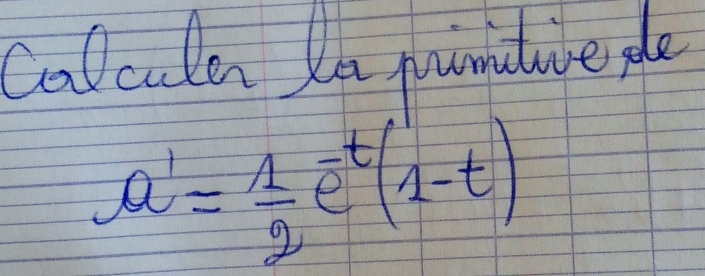 Calculer la primitive de
a' = 1/2 e^-t (1-t)